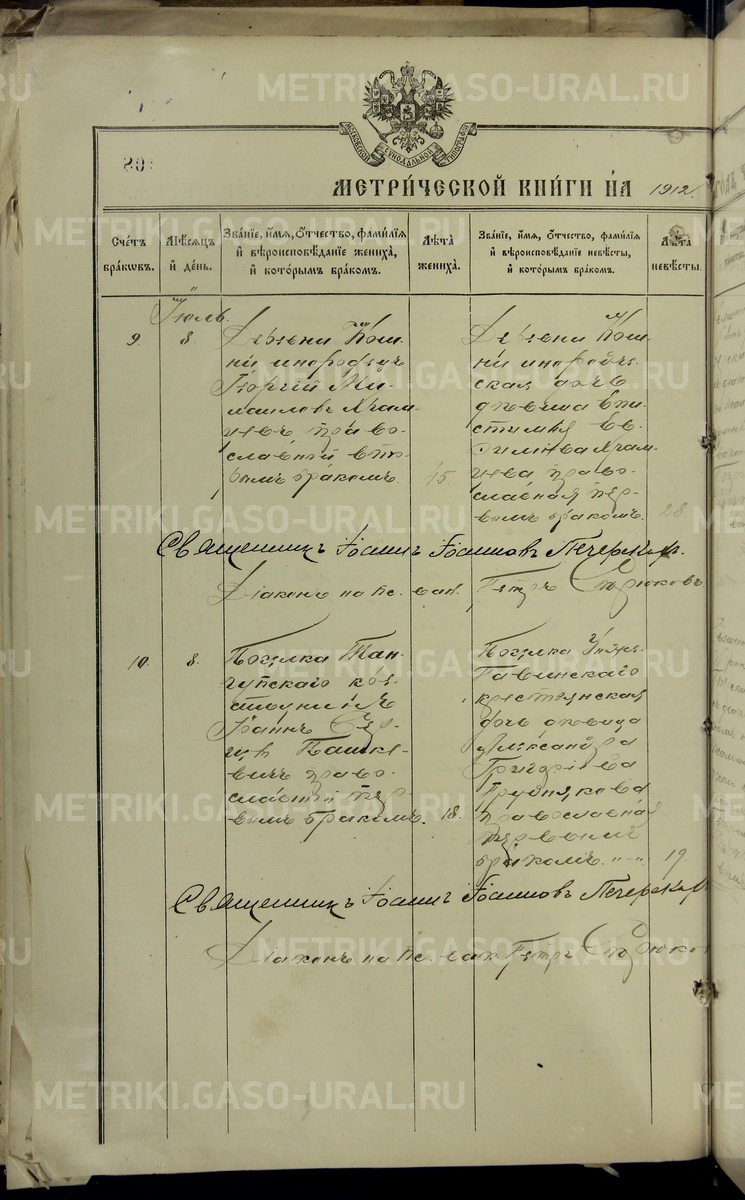 МОСКОВСКОЙ СѴНОДАЛЬНОЙ ТИПОГРАФІИ
МЕТРИ́ЧЕСКОЙ КНИ́ГИ НА 1912
Сче́тъ бра́кωвъ.
Мѣ́сяцъ и҆ де́нь.
Зва́нїе, и҆́мя, ѻ҆́тчество, фами́лїя и҆ вѣроисповѣ́данїе жениха̀, и҆ кото́рымъ бра́комъ.
Лѣ̑та жениха̀.
Зва́нїе, и҆́мя, ѻ҆́тчество, фами́лїя и҆ вѣроисповѣ́данїе невѣ́сты, и҆ кото́рымъ бра́комъ.
Лѣ̑та невѣ́сты.
Іюль
9. 8.
Деревни Кош-
ни инородецъ
Георгій Ми-
хаиловъ
право-
славный вто-
рымъ бракомъ
45.
Деревни Кош-
ни инородче-
ская дочь
дѣвица Епи-
стимія Ев-
право-
славная пер-
вымъ бракомъ. 28.
Священникъ Іоаннъ Іоанновъ Печерскихъ.
Діаконъ на пс. вак. Петръ Стрюковъ
10. 8.
Поселка Тан-
Іоаннъ Сер-
гѣевъ Пашке-
вичъ право-
славный пер-
вымъ бракомъ. 18.
Поселка
крестьянская
дочь дѣвица
Александра
Григоріева
православная
первымъ
бракомъ. 19.
Священникъ Іоаннъ Іоанновъ Печерскихъ
Діаконъ на пс. вак Петръ Стрюковъ
METRIKI.GASO-URAL.RU